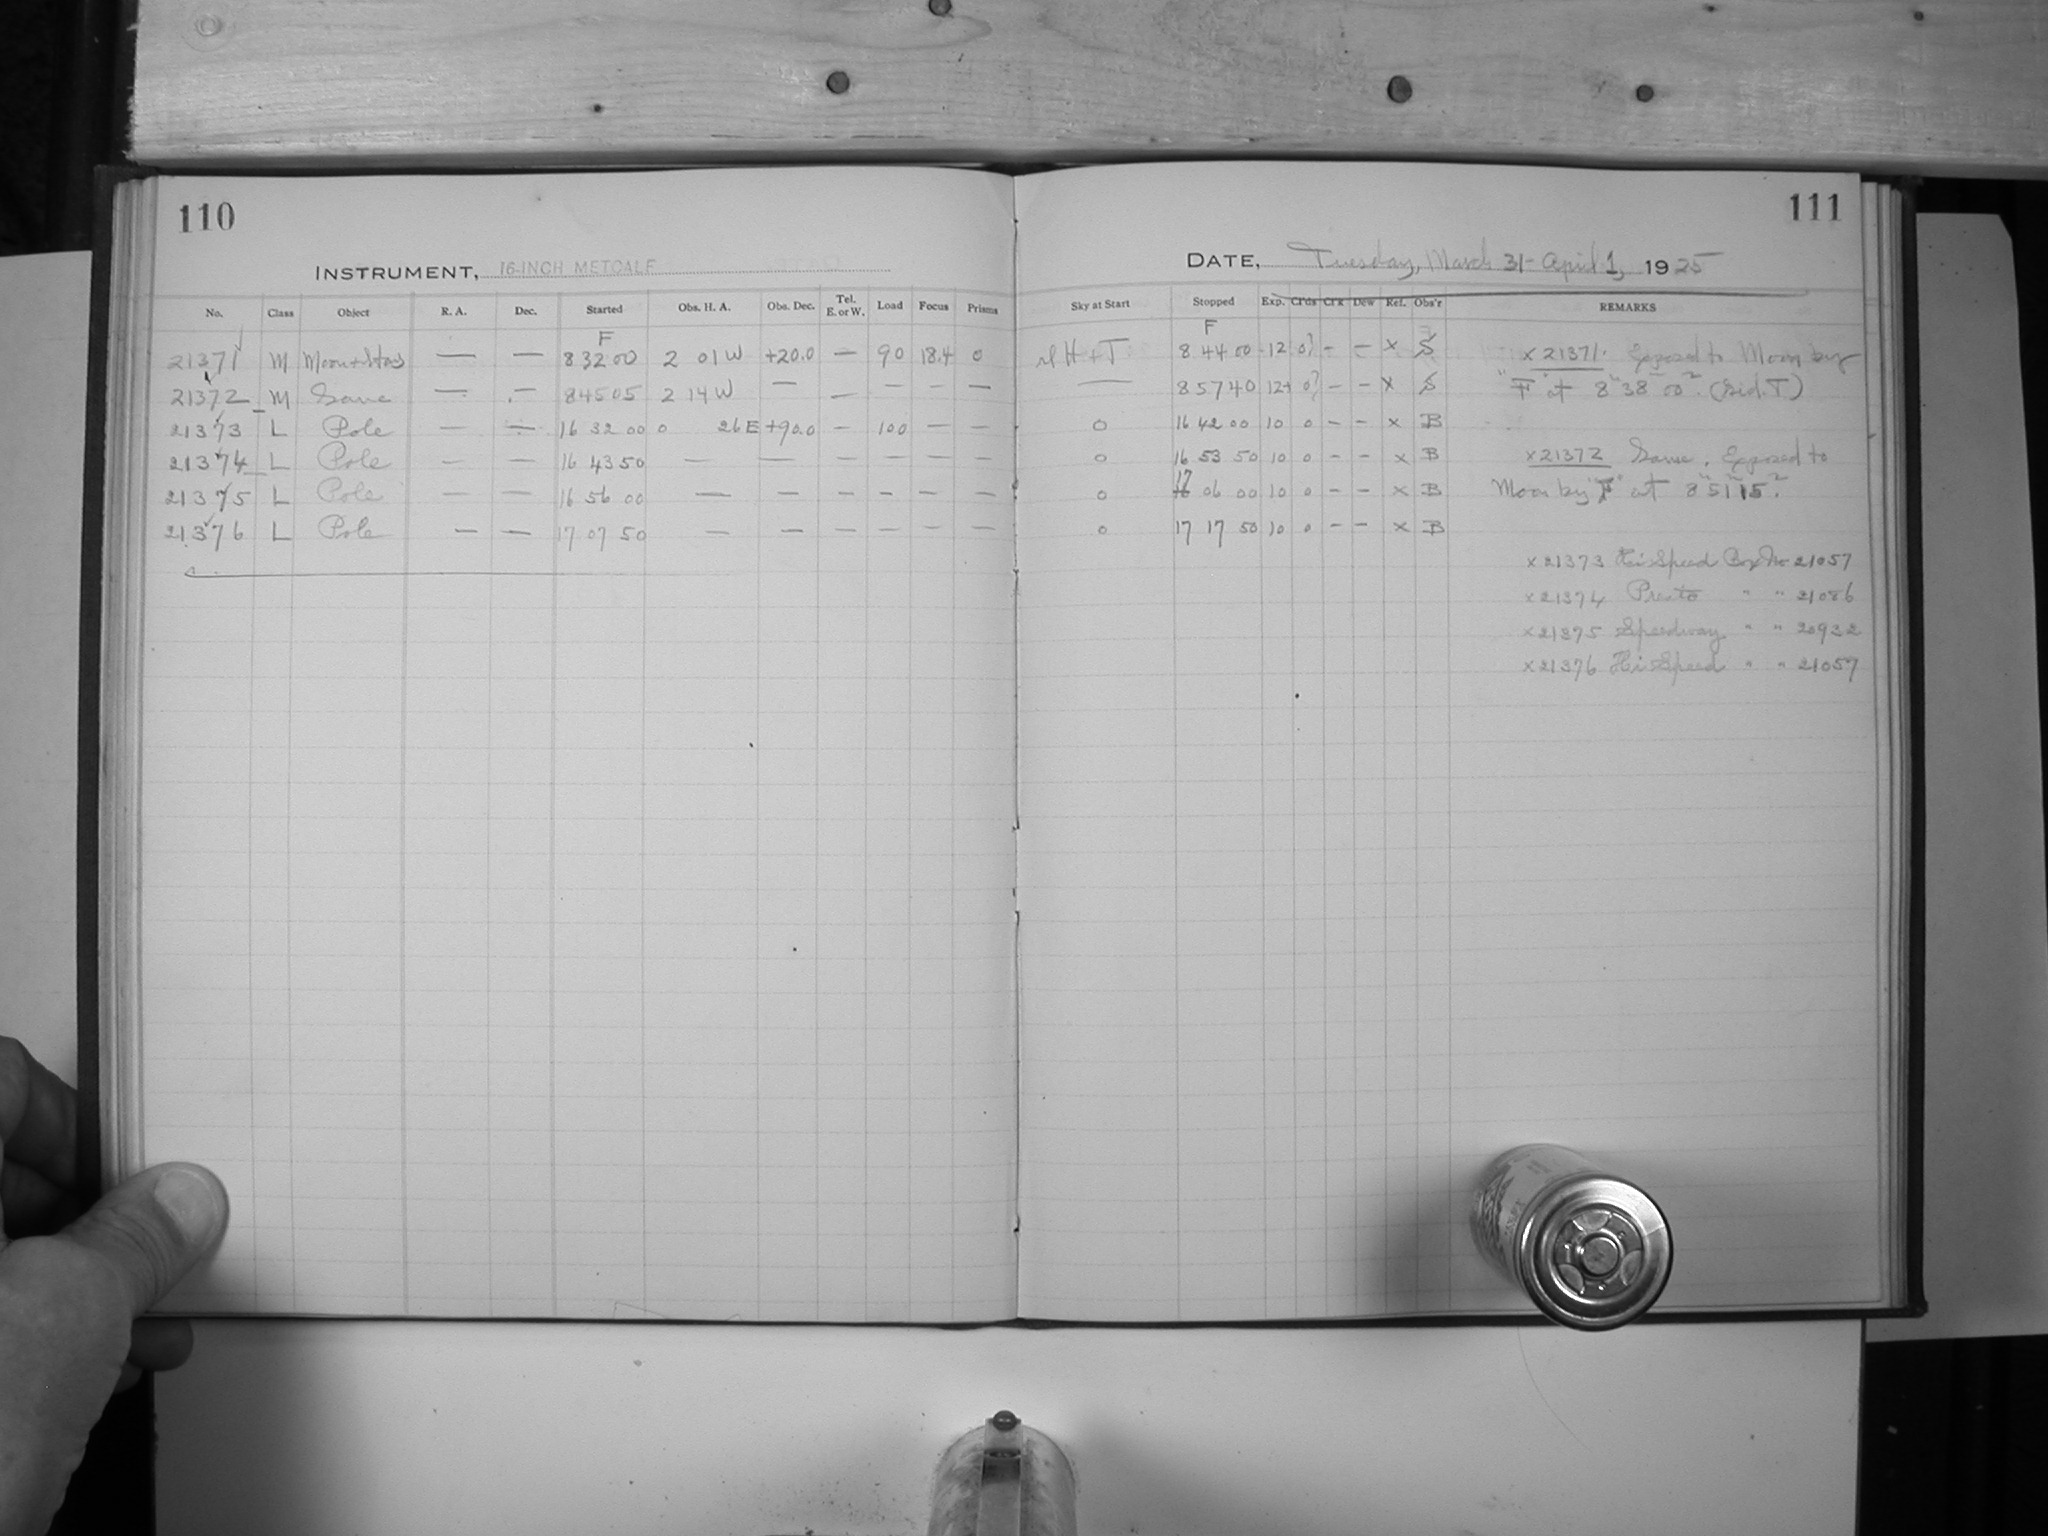 110
INSTRUMENT, 16-INCH METCALF
No. Class Object R. A. Dec. Started Obs. H. A. Obs. Dec. Tel. E. or W. Load Focus Prisms
F
21371 M Moon+Stars — — 8 32 00 2 01 W +20.0 — 90 18.4 0
21372 M Same — — 8 45 05 2 14 W — — — — —
21373 L Pole — — 16 32 00 0 26 E +90.0 — 100 — —
21374 L Pole — — 16 43 50 — — — — — —
21375 L Pole — — 16 56 00 — — — — — —
21376 L Pole — — 17 07 50 — — — — — —
111
DATE, Tuesday, March 31 - April 1, 1925
Sky at Start Stopped Exp. Cl'ds Cl'k Dew Ref. Obs'r REMARKS
F
H+T 8 44 00 12 0? - - x S
— 8 57 40 12+ 0? - - x S
0 16 42 00 10 0 - - x B
0 16 53 50 10 0 - - x B
0 17 06 00 10 0 - - x B
0 17 17 50 10 0 - - x B
x 21371. Exposed to Moon by
"F" at 8 38 00. (Sid. T)
x 21372 Same. Exposed to
Moon by "F" at 8 51 15.
x 21373 Hi-Speed Box No 21057
x 21374 Presto " " 21086
x 21375 Speedway " " 20932
x 21376 Hi-Speed " " 21057